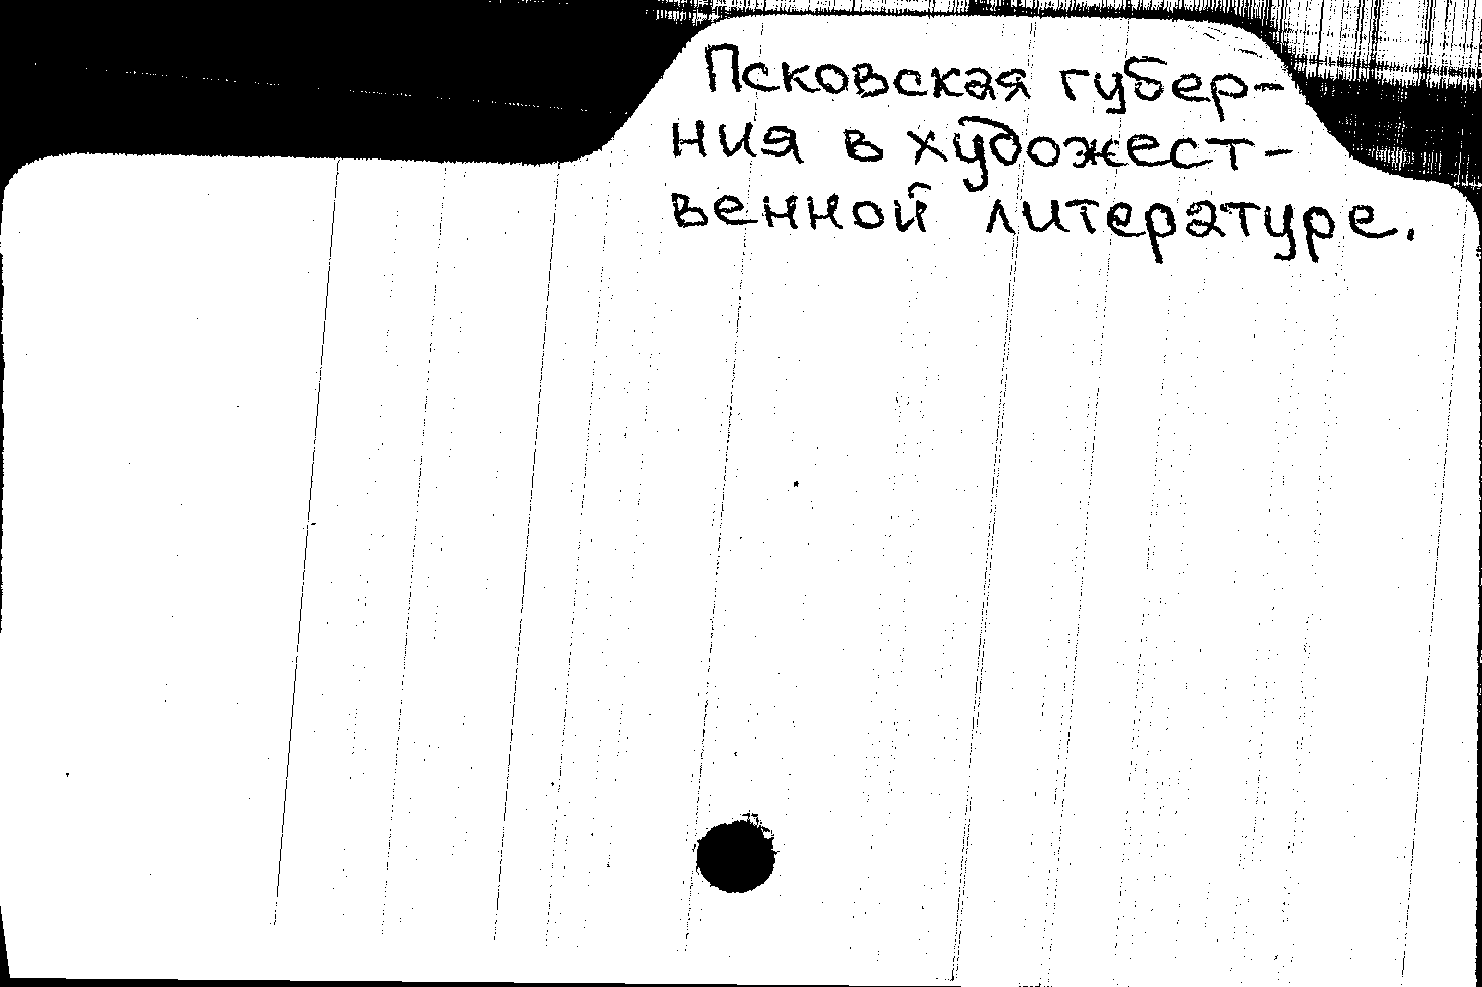 Псковская губер-
ния в художест-
венной литературе.